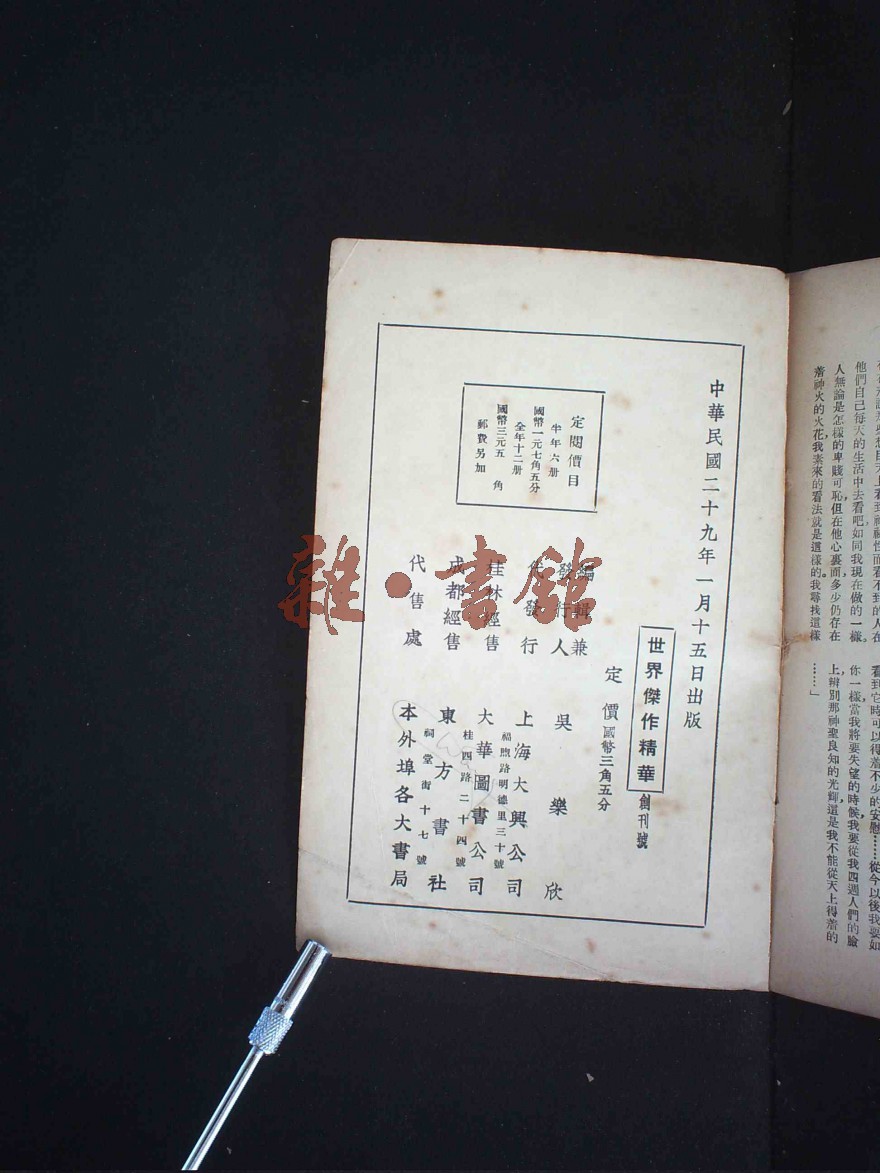 中華民國二十九年一月十五日出版
世界傑作精華 創刊號
定價國幣三角五分
編輯兼
發行人 吳樂欣
代發行 上海大興公司
福煦路明德里三十號
桂林經售 大華圖書公司
桂四路二十四號
成都經售 東方書社
祠堂街十七號
代售處 本外埠各大書局
定閱價目
半年六册
國幣一元七角五分
全年十二册
國幣三元五角
郵費另加
雜·書館
他們自己每天的生活中去看吧如同我現在做的一樣。
人無論是怎樣的卑賤可恥但在他心裏面多少仍存在
着神火的火花，我素來的看法就是這樣的。我尋找這樣
看到它時可以得着不少的安慰……從今以後我要如
你一樣當我將要失望的時候，我要從我四週人們的臉
上辨別那神聖良知的光輝，這是我不能從天上得着的
……」